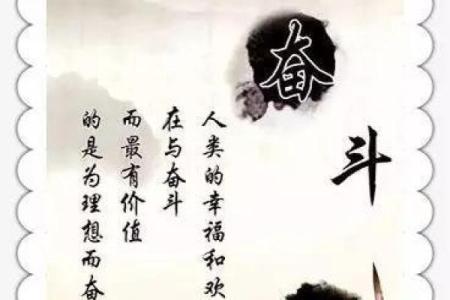 奋斗
人类的幸福和欢
在与奋斗
而最有价值
的是为理想而奋